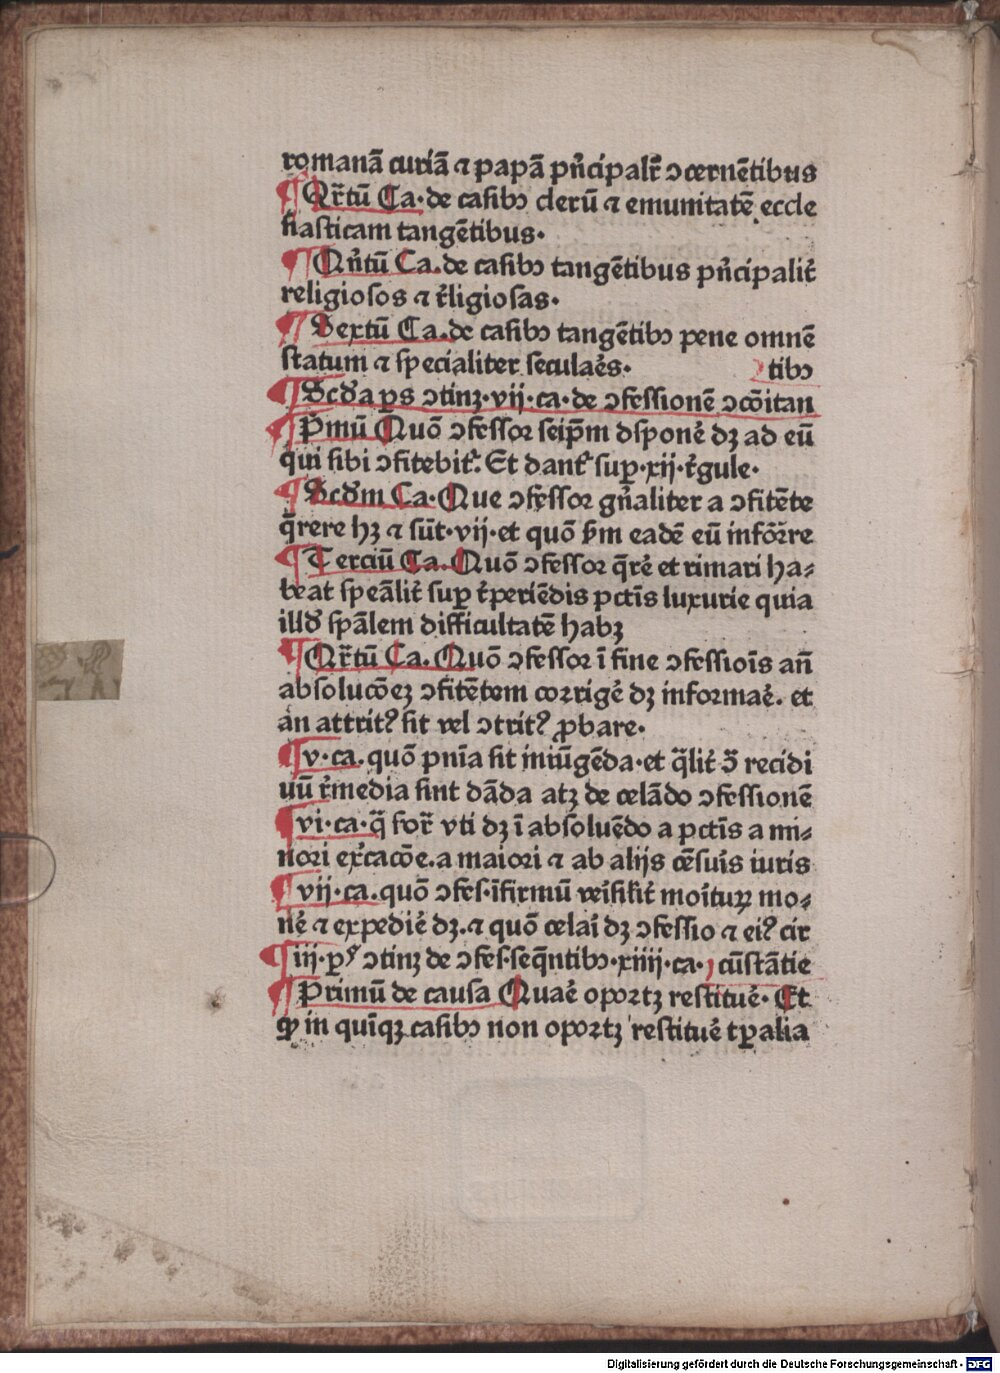 romanā curiā ⁊ papā pn̄cipalr̄ ꝯcernētibus
¶ Qr̄tū Ca. de casibꝰ clerū ⁊ emunitatē eccle
siasticam tangētibus.
¶ Qn̄tū Ca. de casibꝰ tangētibus pn̄cipalit̄
religiosos ⁊ r̄ligiosas.
¶ Sextū Ca. de casibꝰ tangētibꝰ pene omnē
statum ⁊ specialiter seculaēs. tibꝰ
¶ Scd̄a ꝑs ꝯtinꝫ. vij. ca. de ꝯfessionē ꝯcōitan
¶ P̄mū Quō ꝯfessor seip̄m dsponē dꝫ ad eū
qui sibi ꝯfitebit᷑. Et dant᷑ suꝑ. xij. r̄gule.
¶ Scd̄m Ca. Que ꝯfessor gn̄aliter a ꝯfitēte
q̄rere hꝫ ⁊ sūt. vij. et quō ẜm eadē eū infōr̄re
¶ Terciū Ca. Quō ꝯfessor q̄rē et rimari ha⸗
beat speālit̄ suꝑ r̄periēdis pctīs luxurie quia
illd̄ spālem difficultatē habꝫ
¶ Qr̄tū Ca. Quō ꝯfessor ī fine ꝯfessiois an̄
absolucōeꝫ ꝯfitētem corrigē dꝫ informaē. et
an attritꝰ sit vel ꝯtritꝰ ꝓbare.
¶ v. ca. quō pnīa sit iniūgēda. et q̄lit̄ ꝯ̄ recidi
uū r̄media sint dāda atꝫ de celādo ꝯfessionē
¶ vi. ca. q̄ for̄ vti dꝫ ī absoluēdo a pctīs a mi⸗
nori ex̄cacōe. a maiori ⁊ ab alijs cēsuīs iuris
¶ vij. ca. quō ꝯfes. īfirmū veisilit̄ moīturꝫ mo⸗
nē ⁊ expediē dꝫ. ⁊ quō celaī dꝫ ꝯfessio ⁊ eiꝰ cir
¶ iij. ꝑs ꝯtinꝫ de ꝯfes. seq̄ntibꝰ. xiiii. ca. cūstātie
¶ Primū de causa Quaē oportꝫ restituē. Et
ꝙ in quīqꝫ casibꝰ non oportꝫ restituē tꝑalia
Digitalisierung gefördert durch die Deutsche Forschungsgemeinschaft - DFG